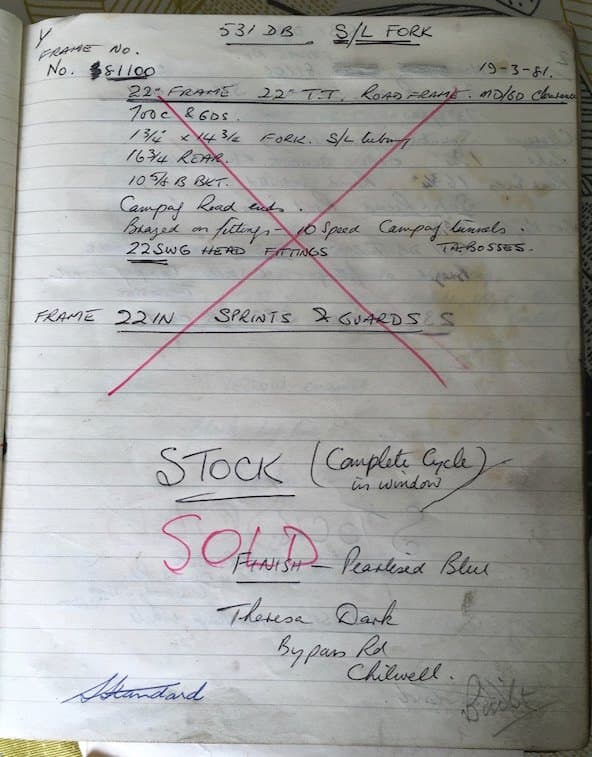 Y
531 DB S/L FORK
FRAME NO.
No. 81100 19-3-81.
22" FRAME 22" T.T. ROAD FRAME. MD/GD Clearance
700c & GDS.
1 3/4" x 14 3/4 FORK. S/L tubing
16 3/4 REAR.
10 5/8 B BKT.
Campag Road ends.
Brazed on fittings - 10 Speed Campag tunnels.
22SWG HEAD FITTINGS BOSSES.
FRAME 22IN SPRINTS & GUARDS
STOCK (Complete Cycle)
in window
SOLD
FINISH - Pearlised Blue
Theresa Dark
Bypass Rd
Chilwell.
Standard Built